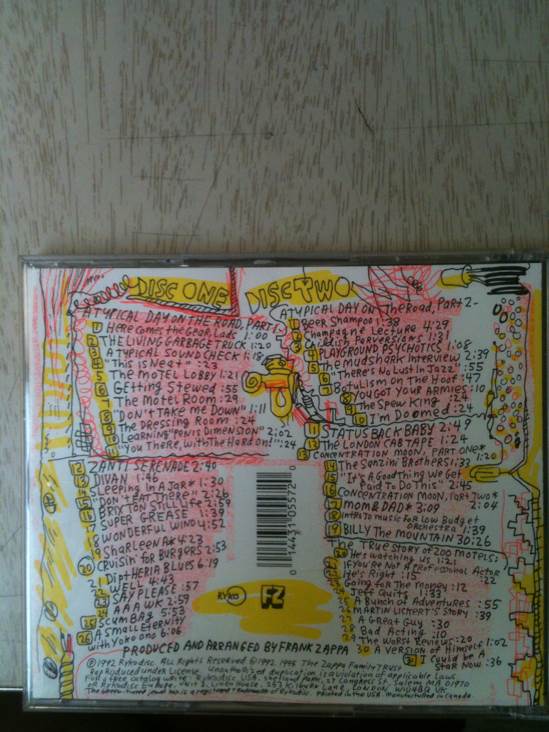 DISC ONE
A TYPICAL DAY ON THE ROAD, PART 1-
1 Here Comes the Gear, Lads 1:00
2 THE LIVING GARBAGE TRUCK 1:20
3 A TYPICAL SOUNDCHECK 1:18
4 "THIS IS NEAT" :23
5 THE MOTEL LOBBY 1:21
6 GETTING STEWED :55
7 The Motel Room :29
8 "DON'T TAKE ME DOWN" 1:11
9 The DRESSING ROOM :24
10 Learning "PENIS DIMENSION" 2:02
11 "You There, with The Hard on!" :24
12 ZANTI SERENADE 2:40
13 DIVAN 1:46
14 Sleeping In A Jar* 1:30
15 "DON'T EAT THERE" 2:26
16 BRIXTON STILL LIFE 2:59
17 SUPER GREASE 1:39
18 WONDERFUL WIND 4:52
19 SharLeenA* 4:23
20 Cruisin' for BURGERS 2:53
21 DIPTHERIA BLUES 6:19
22 WELL 4:43
23 SAY PLEASE :57
24 AAAWK 2:59
25 SCUMBAG 5:53
26 A SMALL ETERNITY
with Yoko Ono 6:06
DISC TWO
A TYPICAL DAY ON The Road, Part 2-
1 Beer Shampoo 1:38
2 Champagne Lecture 4:29
3 Childish Perversions 1:31
4 PLAYGROUND PSYCHOTICS 1:08
5 The Mudshark Interview 2:39
6 "There's No Lust In Jazz" :55
7 Botulism on the Hoof :47
8 You Got Your Armies :10
9 The Spew King :24
10 I'm Doomed :24
11 STATUS BACK BABY 2:49
12 The LONDON CAB TAPE 1:24
13 CONCENTRATION MOON, PART ONE* 1:20
14 The Sanzini Brothers 1:33
15 "It's A Good Thing We Get
Paid To Do This" 2:45
16 CONCENTRATION MOON, PART TWO* 2:04
17 MOM & DAD* 3:09
18 Intro to music for Low Budget
Orchestra 1:39
19 BILLY THE MOUNTAIN 30:26
The TRUE STORY OF 200 MOTELS:
20 He's watching Us 1:21
21 If You're Not A Professional Actor :22
22 He's Right :15
23 Going for The Money :12
24 Jeff Quits 1:33
25 A Bunch of Adventures :55
26 MARTIN LICKERT'S STORY :39
27 A Great Guy :30
28 Bad Acting :10
29 The Worst Reviews :20
30 A VERSION of Himself 1:02
31 I Could Be A
Star Now :36
0 14431-05572 0
RYKO
FZ
PRODUCED AND ARRANGED BY FRANK ZAPPA
©1992 Rykodisc. All Rights Reserved ©1992, 1995 The Zappa Family Trust